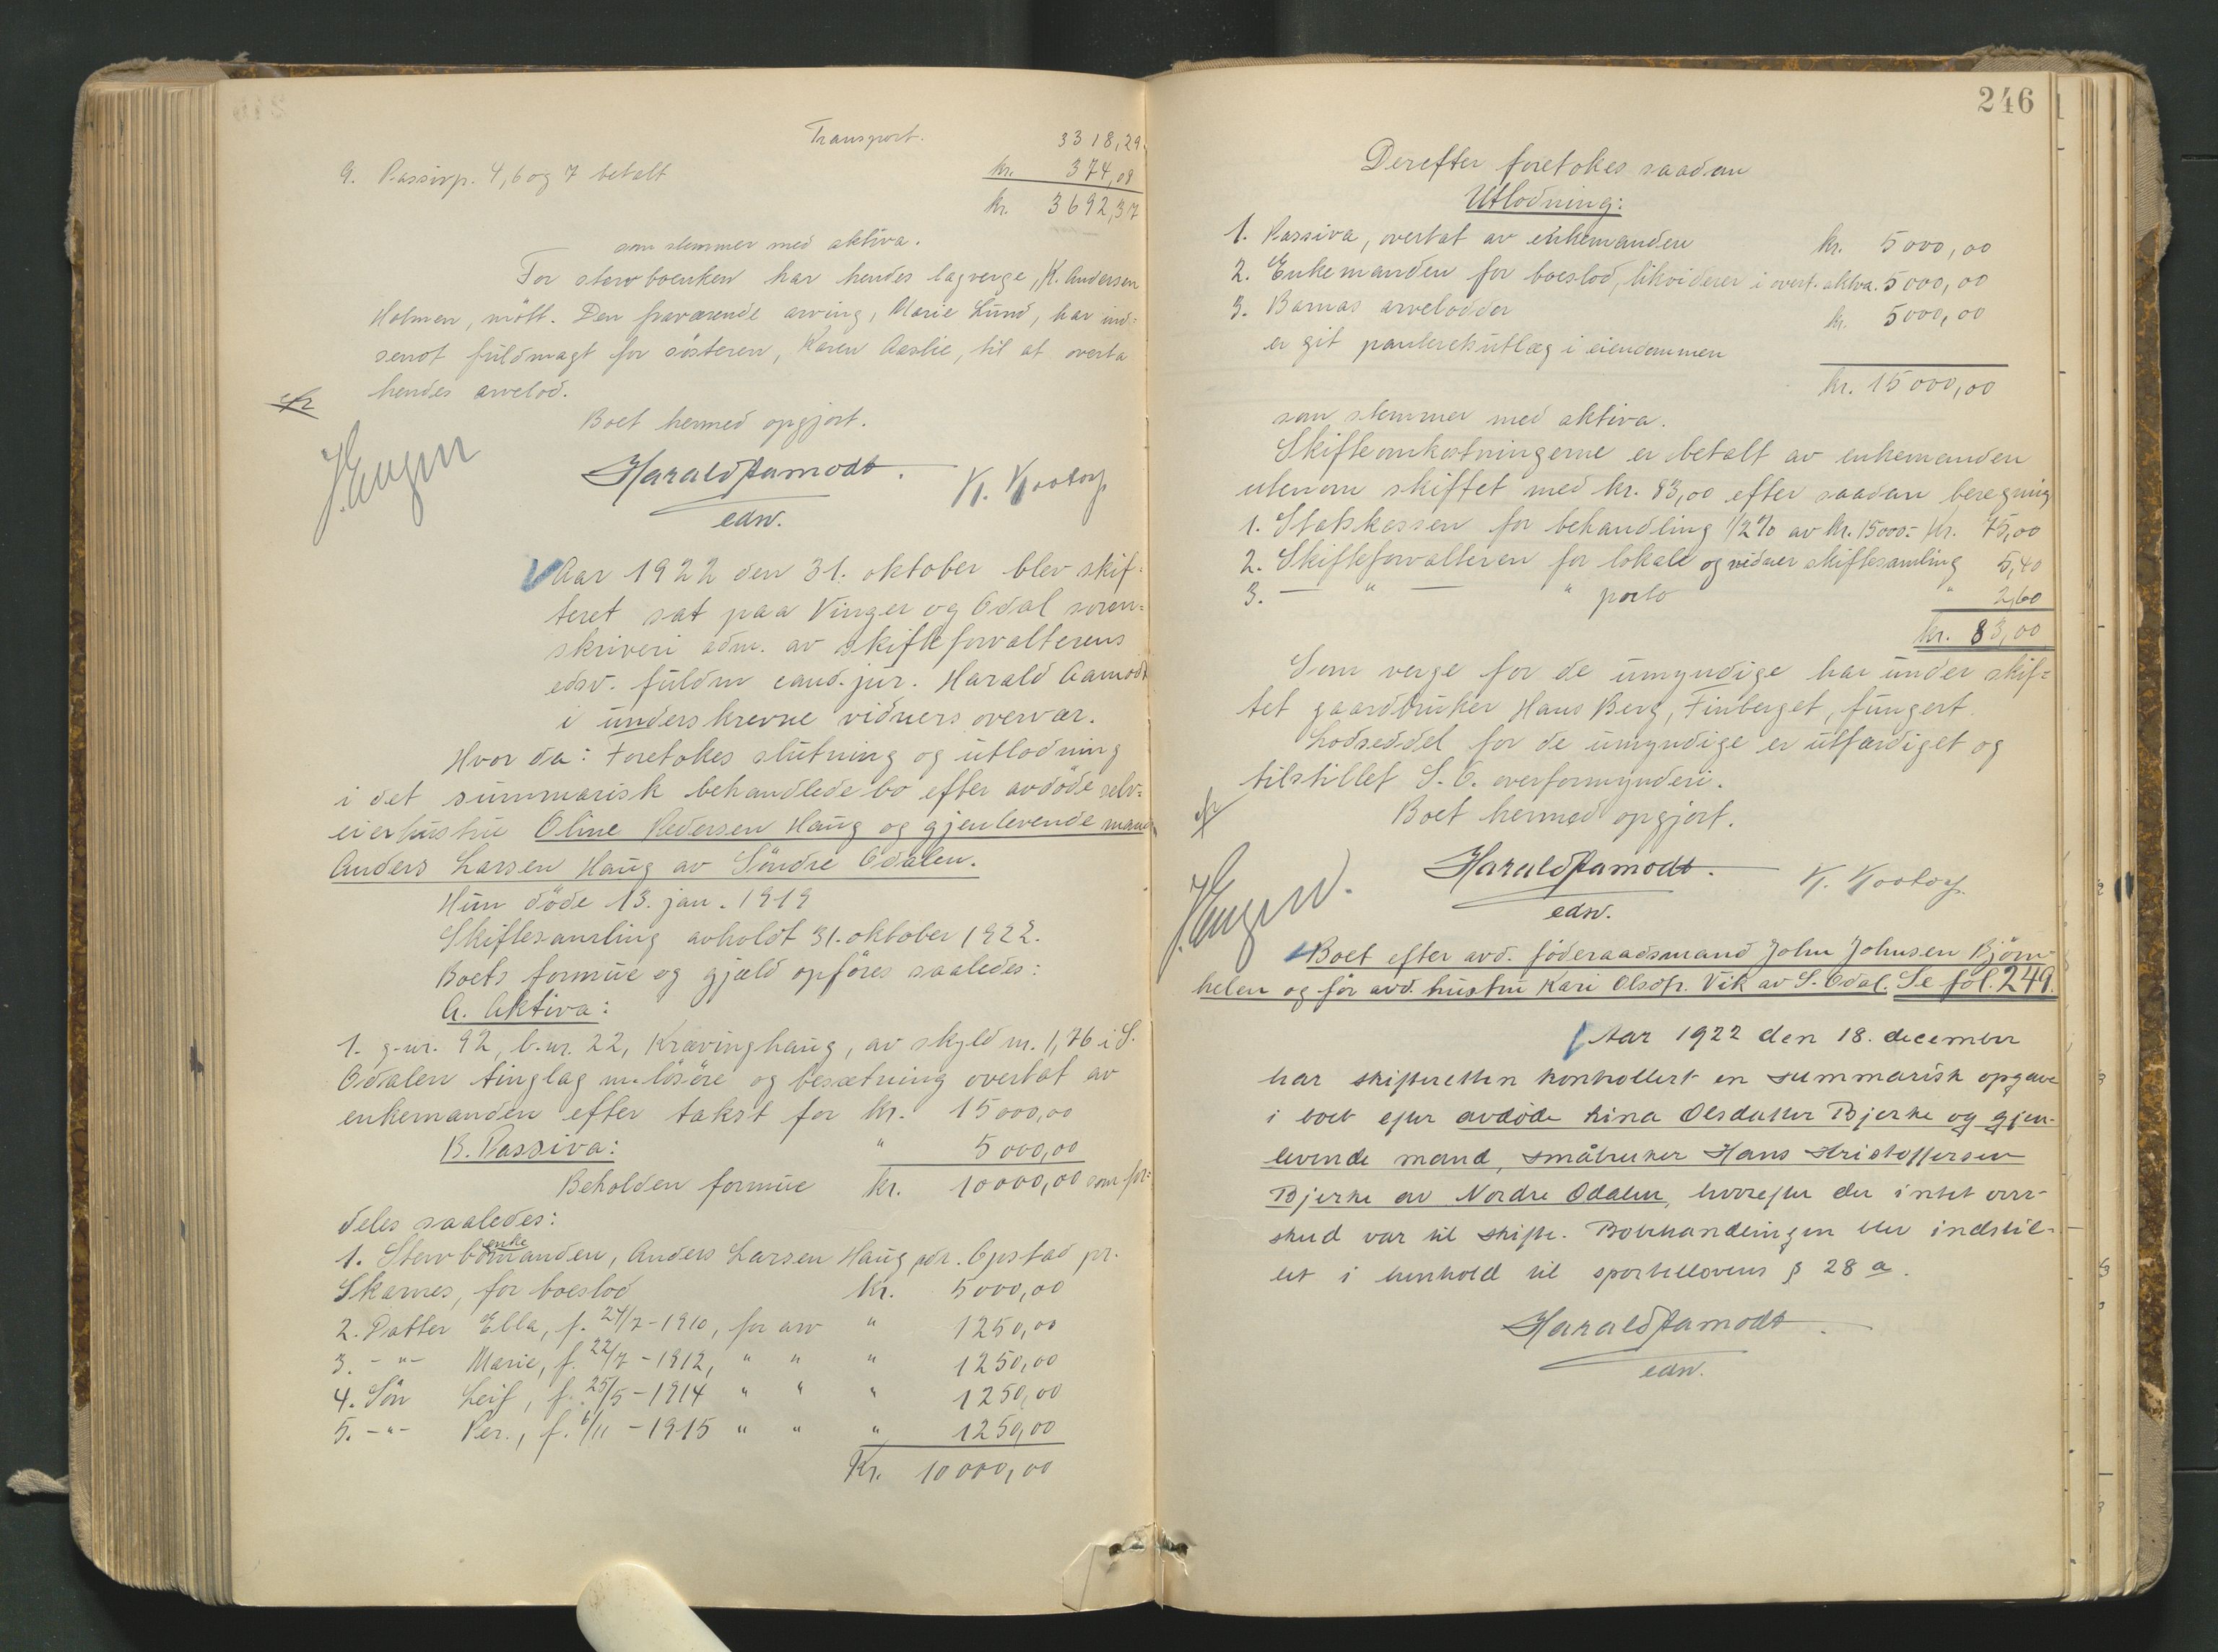 Transport. 3318,29
9. Passivp. 4, 6 og 7 betalt kr. 374,08
kr. 3692,37
som stemmer med aktiva.
For stervboenken har hendes lagverge, K. Andersen
Holmen, mött. Den fraværende arving, Marie Lund, har ind-
sendt fuldmagt for søsteren, Karen Aaslie, til at overta
hendes arvelod.
Boet hermed opgjort.
Harald Aamodt.
edsv.
K. Kootorp
J. Engen
Aar 1922 den 31. oktober blev skif-
teret sat paa Vinger og Odal soren-
skriveri adm. av skifteforvalterens
edsv. fuldm cand. jur. Harald Aamodt
i underskrevne vidners overvær.
Hvor da: Foretokes slutning og utlodning
i det summarisk behandlede bo efter avdöde selv-
eierhustru Oline Pedersen Haug og gjenlevende mand
Anders Larsen Haug av Söndre Odalen.
Hun döde 13. jan. 1919
Skiftesamling avholdt 31. oktober 1922.
Boets formue og gjæld opföres saaledes:
A. Aktiva:
1. g.-nr. 92, b.-nr. 22, Krævinghaug, av skyld m. 1,76 i S.
Odalen tinglag m. lösöre og besætning overtat av
enkemanden efter takst for kr. 15000,00
B. Passiva: " 5000,00
Beholden formue kr. 10000,00 som for-
deles saaledes:
1. Stervboenkemanden, Anders Larsen Haug adr. Opstad pr.
Skarnes, for boeslod kr. 5000,00
2. Datter Ella, f. 24/7-1910, for arv " 1250,00
3. -"- Marie, f. 22/7-1912, " " " 1250,00
4. Sön Leif, f. 25/5-1914 " " " 1250,00
5. -"- Per., f. 6/11-1915 " " " 1250,00
Kr. 10000,00
246
Derefter foretokes saadan
Utlodning:
1. Passiva, overtat av enkemanden kr. 5000,00
2. Enkemanden for boeslod, likviderer i overt. aktiva. 5000,00
3. Barnas arvelodder kr. 5000,00
er git panteretsutlæg i eiendommen
kr. 15000,00
som stemmer med aktiva.
Skifteomkostningerne er betalt av enkemanden
utenom skiftet med kr. 83,00 efter saadan beregning
1. Statskassen for behandling 1/2% av kr. 15000.- kr. 75,00
2. Skifteforvalteren for lokale og vidner skiftesamling 5,40
3. — " — " porto " 2,60
kr. 83,00
Som verge for de umyndige har under skif-
tet gaardbruker Hans Berg, Finberget, fungert.
Lodseddel for de umyndige er utfærdiget og
tilstillet S. O. overformynderi.
Boet hermed opgjort.
Harald Aamodt.
edsv.
K. Kootorp
J. Engen
Boet efter avd. föderaadsmand John Johnsen Björn-
helen og før avd. hustru Kari Olsdtr. Vik av S. Odal. Se fol. 249.
Aar 1922 den 18. december
har skifteretten kontrollert en summarisk opgave
i boet efter avdøde Lina Olsdatter Bjerke og gjen-
levende mand, småbruker Hans Kristoffersen
Bjerke av Nordre Odalen, hvorefter der intet over-
skud var til skifte. Bobehandlingen blev indstil-
let i henhold til sportellovens § 28 a.
Harald Aamodt.
edsv.